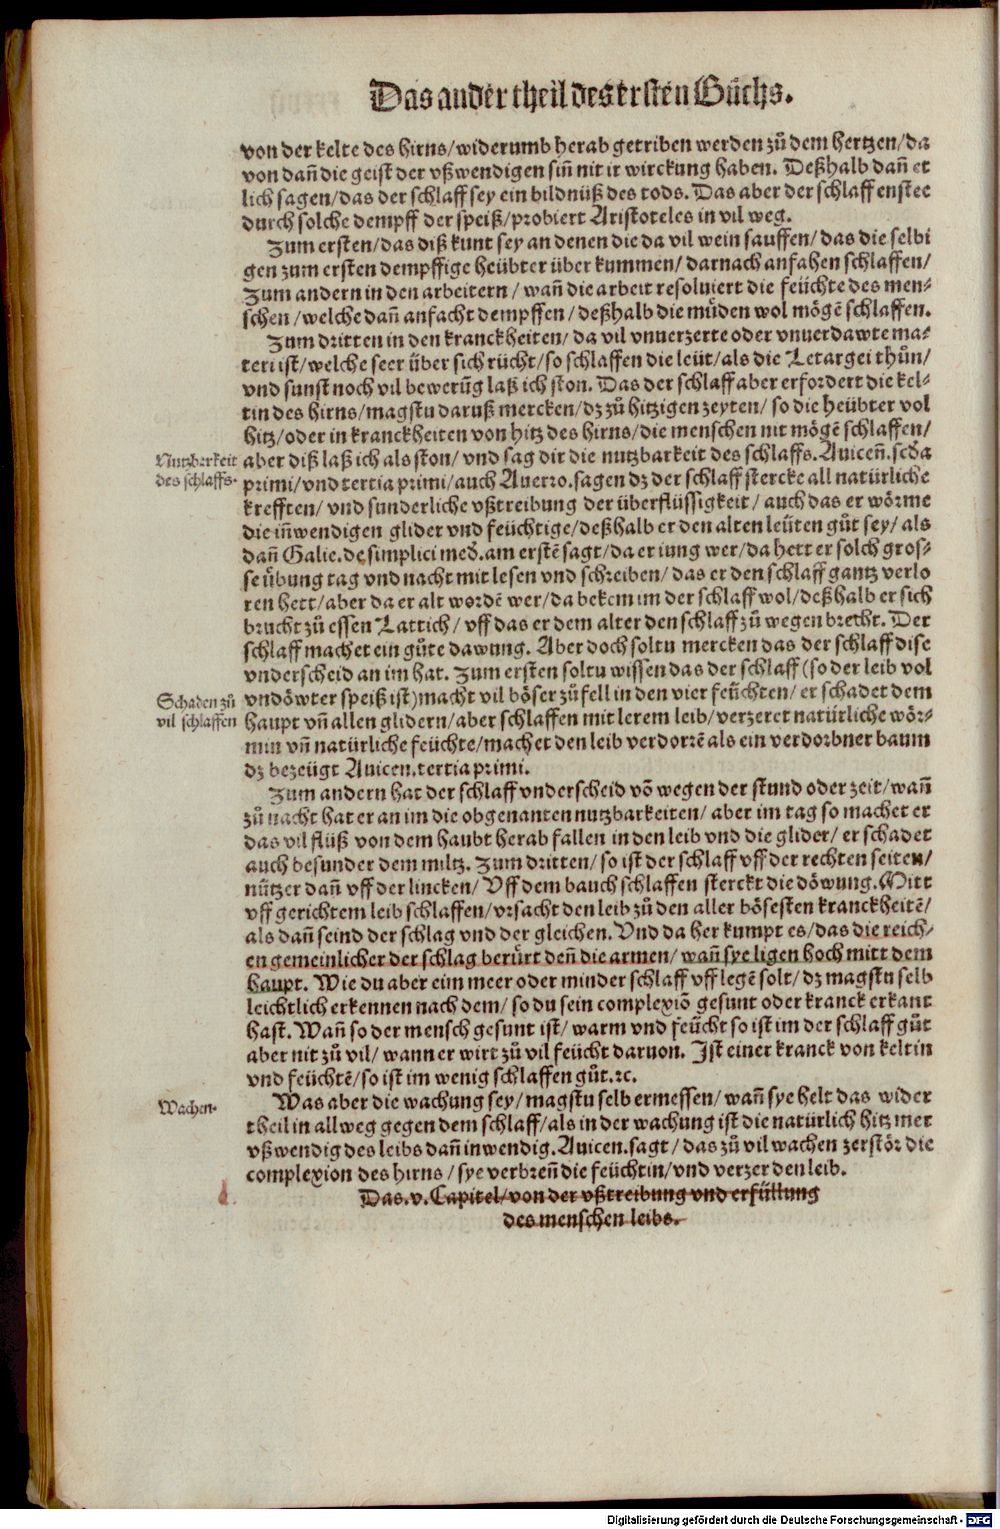 Das ander theil des ersten Bůchs.
von der kelte des hirns/widerumb herab getriben werden zů dem hertzen/da
von dañ die geist der vßwendigen siñ nit ir wirckung haben. Deßhalb dañ et
lich sagen/das der schlaff sey ein bildnüß des tods. Das aber der schlaff enstee
durch solche dempff der speiß/probiert Aristoteles in vil weg.
Zum ersten/das diß kunt sey an denen die da vil wein sauffen/das die selbi
gen zum ersten dempffige heübter über kummen/darnach anfahen schlaffen/
Zum andern in den arbeitern/wañ die arbeit resoluiert die feüchte des men⸗
schen/welche dañ anfacht dempffen/deßhalb die müden wol mögē schlaffen.
Zum dritten in den kranckheiten/da vil vnuerzerte oder vnuerdawte ma⸗
teri ist/welche seer über sich rücht/so schlaffen die leüt/als die Letargei thůn/
vnd sunst noch vil bewerūg laß ich ston. Das der schlaff aber erfordert die kel⸗
tin des hirns/magstu daruß mercken/dz zů hitzigen zeyten/so die heübter vol
hitz/oder in kranckheiten von hitz des hirns/die menschen nit mögē schlaffen/
Nutzberkeit
des schlaffs.
aber diß laß ich als ston/vnd sag dir die nutzbarkeit des schlaffs. Auiceñ. scd̄a
primi/vnd tertia primi/auch Auerro. sagen dz der schlaff stercke all natürliche
krefften/vnd sunderliche vßtreibung der überflüssigkeit/auch das er wörme
die iñwendigen glider vnd feüchtige/deßhalb er den alten leüten gůt sey/als
dañ Galie. de simplici med̄. am erstē sagt/da er iung wer/da hett er solch gros⸗
se übung tag vnd nacht mit lesen vnd schreiben/das er den schlaff gantz verlo
ren hett/aber da er alt wordē wer/da bekem im der schlaff wol/deßhalb er sich
brucht zů essen Lattich/vff das er dem alter den schlaff zů wegen brecht. Der
schlaff machet ein gůte dawung. Aber doch soltu mercken das der schlaff dise
vnderscheid an im hat. Zum ersten soltu wissen das der schlaff (so der leib vol
Schaden zů
vil schlaffen
vndöwter speiß ist) macht vil böser zůfell in den vier feüchten/er schadet dem
haupt vñ allen glidern/aber schlaffen mit lerem leib/verzeret natürliche wör⸗
min vñ natürliche feüchte/machet den leib verdorrē als ein verdorbner baum
dz bezeügt Auicen. tertia primi.
Zum andern hat der schlaff vnderscheid vō wegen der stund oder zeit/wañ
zů nacht hat er an im die obgenanten nutzbarkeiten/aber im tag so machet er
das vil flüß von dem haubt herab fallen in den leib vnd die glider/er schadet
auch besunder dem miltz. Zum dritten/so ist der schlaff vff der rechten seiten/
nützer dañ vff der lincken/Vff dem bauch schlaffen sterckt die döwung. Mitt
vff gerichtem leib schlaffen/vrsacht den leib zů den aller bösesten kranckheitē/
als dañ seind der schlag vnd der gleichen. Vnd da her kumpt es/das die reich⸗
en gemeinlicher der schlag berürt deñ die armen/wañ sye ligen hoch mitt dem
haupt. Wie du aber eim meer oder minder schlaff vff legē solt/dz magstu selb
leichtlich erkennen nach dem/so du sein complexiō gesunt oder kranck erkant
hast. Wañ so der mensch gesunt ist/warm vnd feücht so ist im der schlaff gůt
aber nit zů vil/wann er wirt zů vil feücht daruon. Ist einer kranck von keltin
vnd feüchtē/so ist im wenig schlaffen gůt. ꝛc.
Wachen.
Was aber die wachung sey/magstu selb ermessen/wañ sye helt das wider
theil in allweg gegen dem schlaff/als in der wachung ist die natürlich hitz mer
vßwendig des leibs dañ inwendig. Auicen. sagt/das zů vil wachen zerstör die
complexion des hirns/sye verbreñ die feüchtin/vnd verzer den leib.
Das. v. Capitel/von der vßtreibung vnd erfüllung
des menschen leibs.
Digitalisierung gefördert durch die Deutsche Forschungsgemeinschaft - DFG